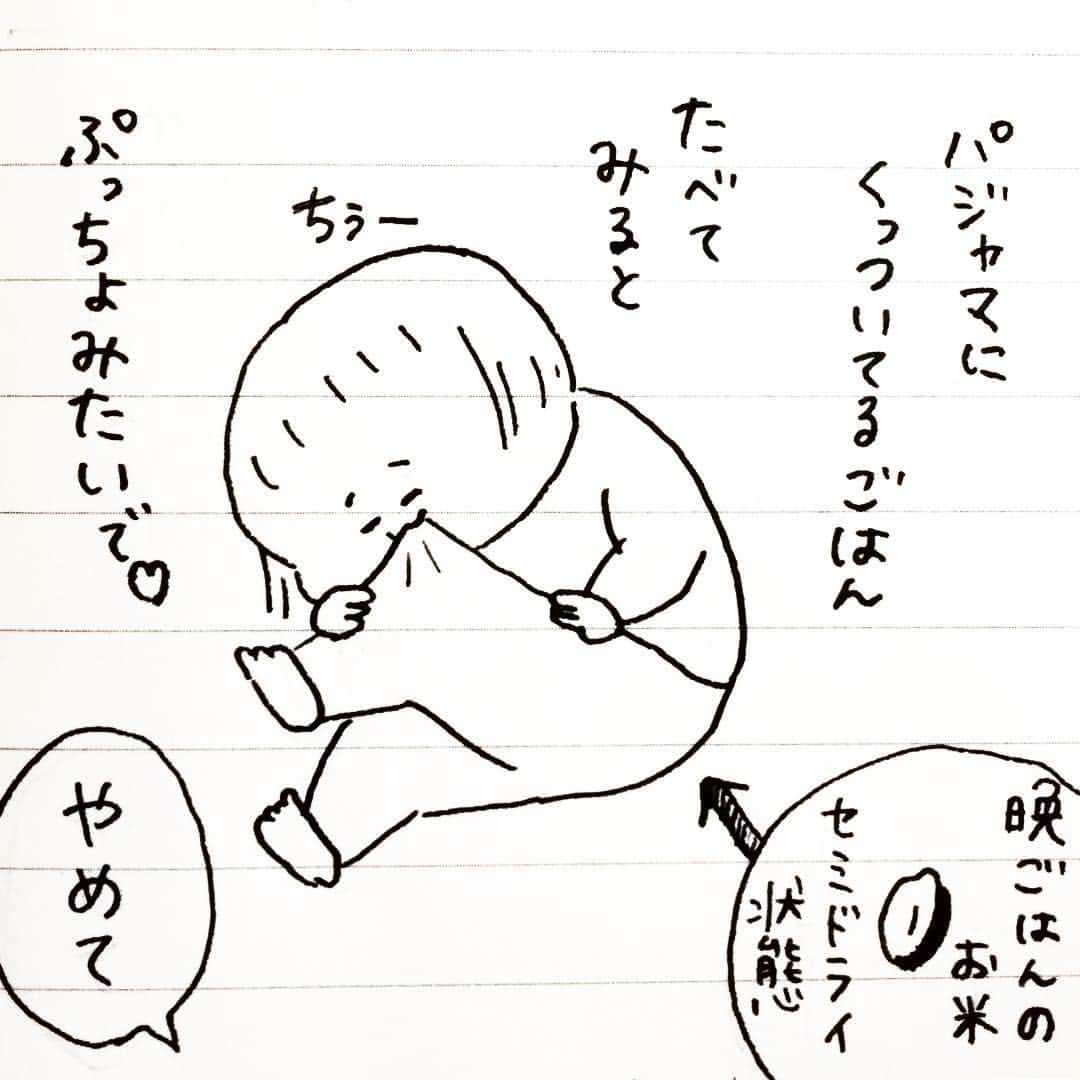 パジャマに
くっついてるごはん
たべて
みると
ちぅー
ぷっちょみたいで♡
晩ごはんの
お米
セミドライ
状態
やめて